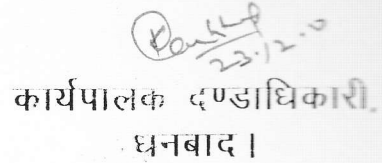 23.12.0
कार्यपालक दण्डाधिकारी.
धनबाद।